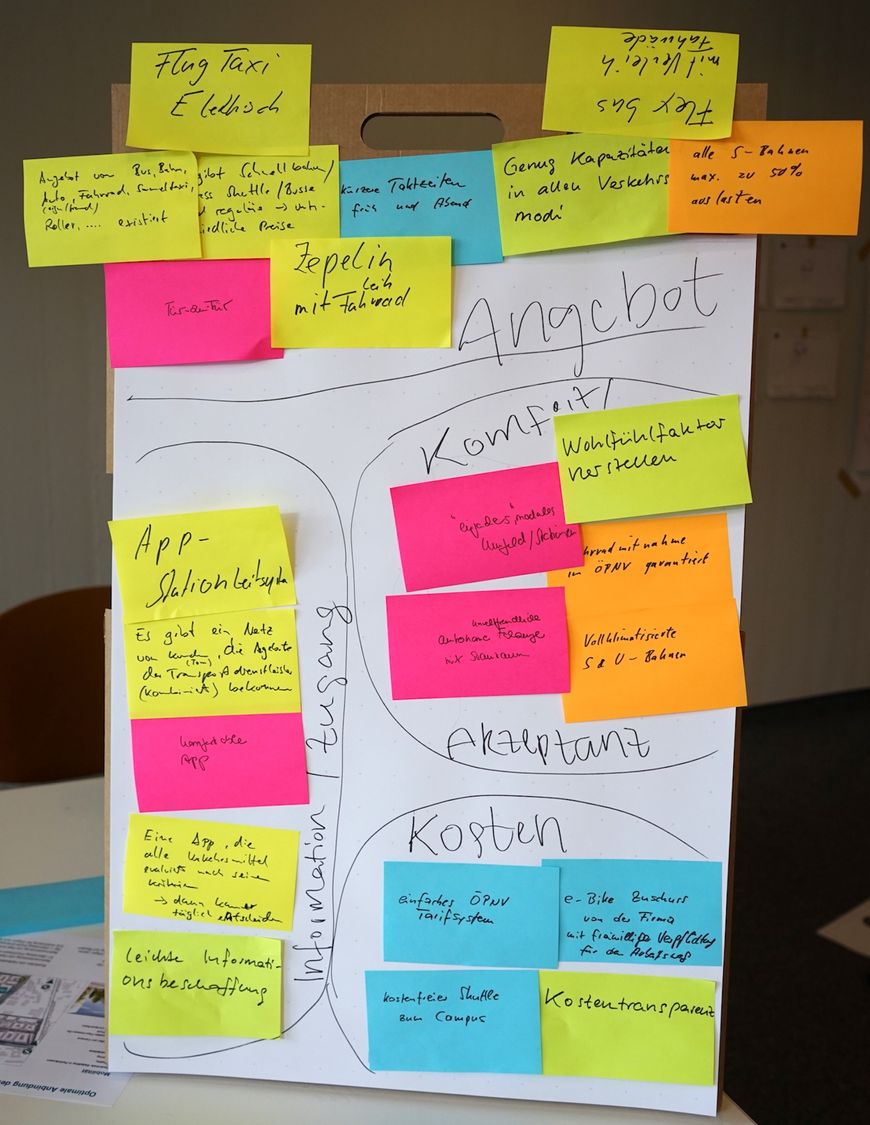 Flug Taxi
Elektrisch
Flex bus
mit Verleih
Fahrräde
Angebot von Bus, Bahn,
Auto, Fahrrad, Sammeltaxi,
Roller, .... existiert
gibt Schnellbahn/
ess Shuttle/Busse
d regulär → unti-
iedliche Preise
kürzere Taktzeiten
früh und Abend
Genug Kapazitäten
in allen Verkehrs
modi
alle S-Bahnen
max. zu 50%
auslasten
Tür-zu-Tür
Zepelin
mit Leih
Fahrrad
Angebot
Komfort/
Wohlfühlfaktor
herstellen
modales
Umfeld/Stationen
ahrrad mitnahme
im ÖPNV garantiert
umweltfreundliche
autonome
mit Stauraum
Vollklimatisierte
S & U-Bahnen
Akzeptanz
App-
Stationleitsystem
Es gibt ein Netz
von Kunden, die Agebote
der Transportdienstleister
(kombiniert) bekommen
komfortable
App
Eine App, die
alle Verkehrsmittel
evaluiert nach seinen
Kriterien
→ dann kann er
täglich entscheiden
leichte Informati-
onsbeschaffung
Information / Zugang
Kosten
einfaches ÖPNV
Tarifsystem
e-Bike Zuschuss
von der Firma
mit freiwilliger Verpflichtung
für den Arbeitsweg
kostenfreier Shuttle
zum Campus
Kostentransparenz
Mobilität
Optimale Anbindung des